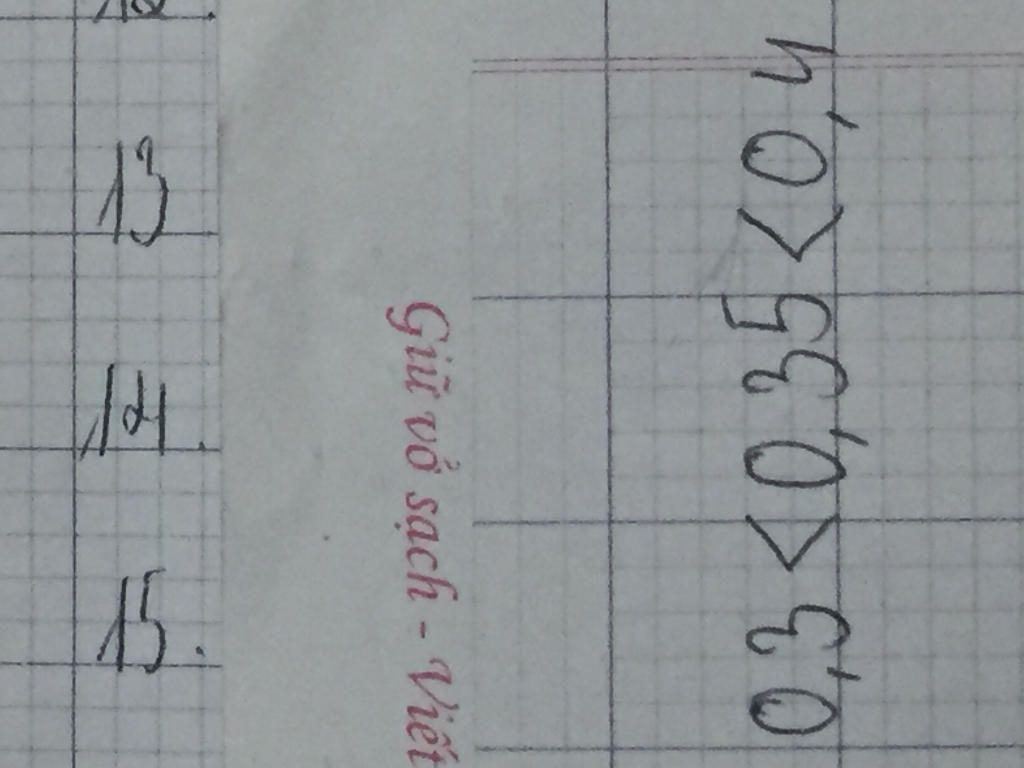 13
14.
15.
Giữ vở sạch - Viết
0,3 < 0,35 < 0,4